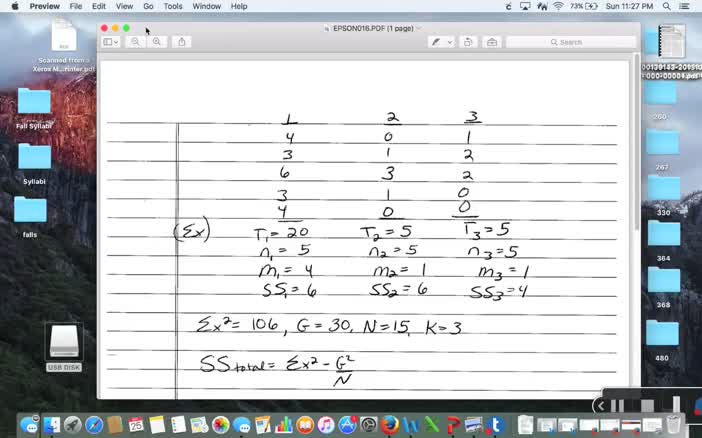 Preview File Edit View Go Tools Window Help 73% Sun 11:27 PM
EPSON016.PDF (1 page)
Search
Scanned from a
Xerox M...rinter.pdf
Fall Syllabi
Syllabi
falls
USB DISK
260
267
330
364
368
480
1 2 3
4 0 1
3 1 2
6 3 2
3 1 0
4 0 0
(Σx) T₁= 20 T₂= 5 T₃= 5
n₁= 5 n₂= 5 n₃= 5
m₁= 4 m₂= 1 m₃= 1
SS₁= 6 SS₂= 6 SS₃= 4
Σx²= 106, G= 30, N= 15, K= 3
SS total= Σx² - G²/N